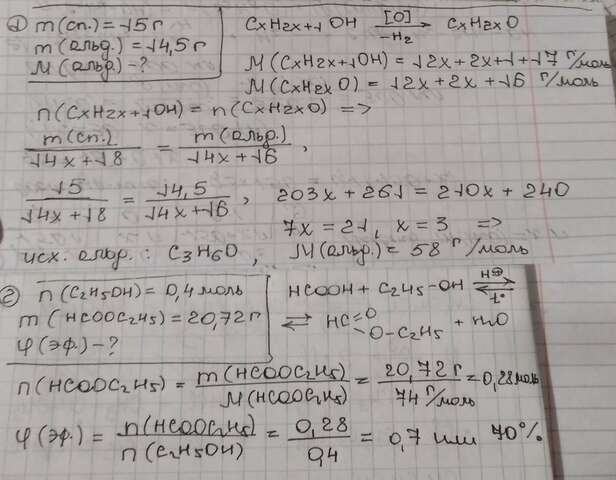 ① m(сп.) = 15 г
m(альд.) = 14,5 г
M(альд.) - ?
CxH2x+1OH [O] → -H2 CxH2xO
M(CxH2x+1OH) = 12x + 2x + 1 + 17 г/моль
M(CxH2xO) = 12x + 2x + 16 г/моль
n(CxH2x+1OH) = n(CxH2xO) =>
m(сп.)/14x+18 = m(альд.)/14x+16,
15/14x+18 = 14,5/14x+16, 203x + 261 = 210x + 240
7x = 21, x = 3 =>
исх. альд.: C3H6O, M(альд.) = 58 г/моль
② n(C2H5OH) = 0,4 моль
m(HCOOC2H5) = 20,72 г
φ(эф.) - ?
HCOOH + C2H5-OH H⊕ ⇌ t°
⇌ HC=O O-C2H5 + H2O
n(HCOOC2H5) = m(HCOOC2H5)/M(HCOOC2H5) = 20,72 г/74 г/моль = 0,28 моль
φ(эф.) = n(HCOOC2H5)/n(C2H5OH) = 0,28/0,4 = 0,7 или 70%